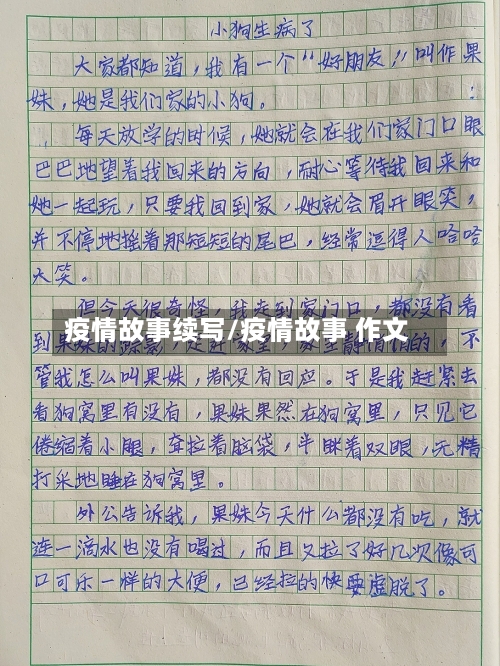 小狗生病了
大家都知道，我有一个“好朋友”叫作果
妹，她是我们家的小狗。
每天放学的时候，她就会在我们家门口眼
巴巴地望着我回来的方向，耐心等待我回来和
她一起玩，只要我回到家，她就会眉开眼笑，
并不停地摇着那短短的尾巴，经常逗得人哈哈
大笑。
但今天很奇怪，我走到家门口，都没有看
疫情故事续写/疫情故事 作文
到果妹的踪影，不
管我怎么叫果妹，都没有回应。于是我赶紧去
看狗窝里有没有，果妹果然在狗窝里，只见它
倦缩着小腿，耷拉着脑袋，半眯着双眼，无精
打采地睡在狗窝里。
外公告诉我，果妹今天什么都没有吃，就
连一滴水也没有喝过，而且又拉了好几次像可
口可乐一样的大便，已经拉的快要虚脱了。